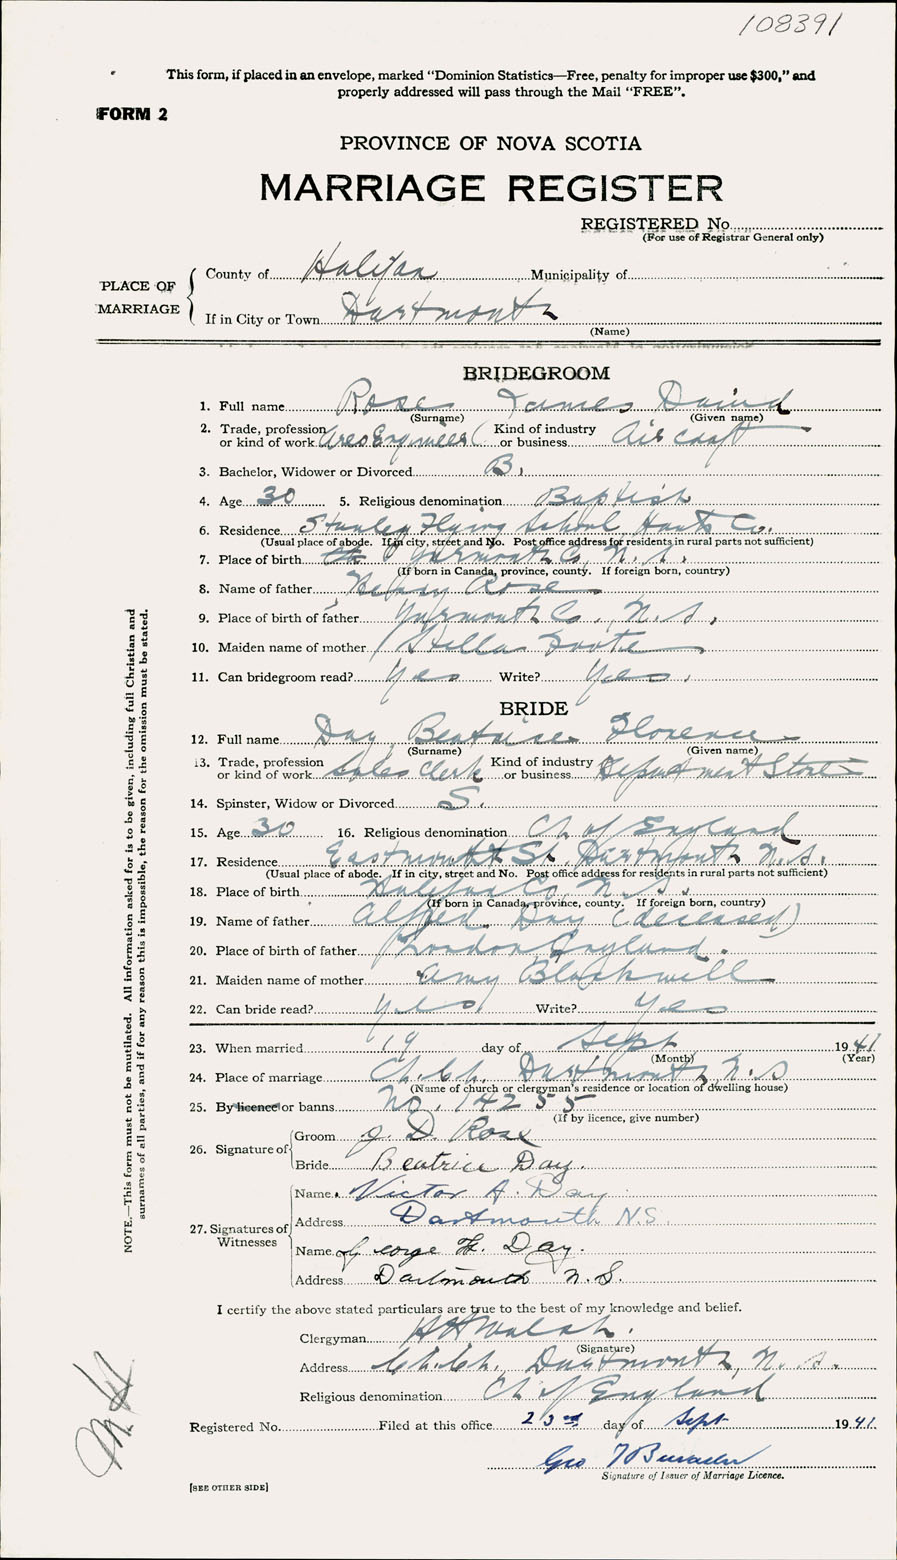 108391
This form, if placed in an envelope, marked "Dominion Statistics—Free, penalty for improper use $300," and
properly addressed will pass through the Mail "FREE".
FORM 2
PROVINCE OF NOVA SCOTIA
MARRIAGE REGISTER
REGISTERED No.
(For use of Registrar General only)
PLACE OF MARRIAGE
County of Halifax Municipality of
If in City or Town Dartmouth
(Name)
BRIDEGROOM
1. Full name Rose James David
(Surname) (Given name)
2. Trade, profession or kind of work Aero Engineer Kind of industry or business Air craft
3. Bachelor, Widower or Divorced B.
4. Age 30 5. Religious denomination Baptist
6. Residence Stanley Flying School Hants Co.
(Usual place of abode. If in city, street and No. Post office address for residents in rural parts not sufficient)
7. Place of birth Yarmouth Co, N.S.
(If born in Canada, province, county. If foreign born, country)
8. Name of father Rose
9. Place of birth of father Yarmouth Co., N.S.,
10. Maiden name of mother Stella Foote
11. Can bridegroom read? Yes Write? Yes.
BRIDE
12. Full name Day Beatrice Florence
(Surname) (Given name)
13. Trade, profession or kind of work Sales Clerk Kind of industry or business Department Store
14. Spinster, Widow or Divorced S.
15. Age 30 16. Religious denomination Ch of England
17. Residence Eastmount St. Dartmouth N.S.
(Usual place of abode. If in city, street and No. Post office address for residents in rural parts not sufficient)
18. Place of birth Halifax Co. N.S.
(If born in Canada, province, county. If foreign born, country)
19. Name of father Alfred Day (deceased)
20. Place of birth of father London England.
21. Maiden name of mother Amy Blackwell
22. Can bride read? Yes Write? Yes
23. When married 19 day of Sept 1941
(Month) (Year)
24. Place of marriage Ch. Ch. Dartmouth, N.S
(Name of church or clergyman's residence or location of dwelling house)
25. By licence or banns No. 14255
(If by licence, give number)
26. Signature of
Groom J. D. Rose
Bride Beatrice Day.
27. Signatures of Witnesses
Name Victor A. Day
Address Dartmouth N.S.
Name George H. Day.
Address Dartmouth N.S.
I certify the above stated particulars are true to the best of my knowledge and belief.
Clergyman H H Walsh.
(Signature)
Address Ch. Ch. Dartmouth, N.S.
Religious denomination Ch of England
Registered No. Filed at this office 23rd day of Sept 1941
Geo
Signature of Issuer of Marriage Licence.
[SEE OTHER SIDE]
NOTE.—This form must not be mutilated. All information asked for is to be given, including full Christian and
surnames of all parties, and if for any reason this is impossible, the reason for the omission must be stated.